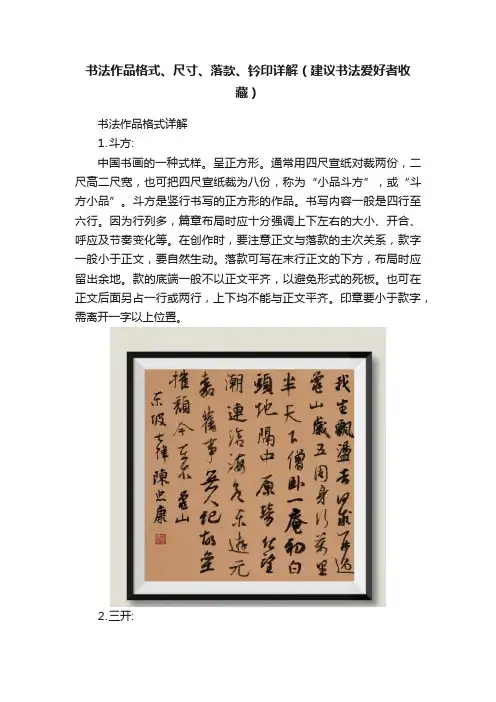 书法作品格式、尺寸、落款、钤印详解（建议书法爱好者收
藏）
书法作品格式详解
1.斗方:
中国书画的一种式样。呈正方形。通常用四尺宣纸对裁两份，二
尺高二尺宽，也可把四尺宣纸裁为八份，称为“小品斗方”，或“斗
方小品”。斗方是竖行书写的正方形的作品。书写内容一般是四行至
六行。因为行列多，篇章布局时应十分强调上下左右的大小、开合、
呼应及节奏变化等。在创作时，要注意正文与落款的主次关系，款字
一般小于正文，要自然生动。落款可写在末行正文的下方，布局时应
留出余地。款的底端一般不以正文平齐，以避免形式的死板。也可在
正文后面另占一行或两行，上下均不能与正文平齐。印章要小于款字，
需离开一字以上位置。
我生飄盪去何求再過
龜山歲五周身行萬里
半天下僧臥一庵初白
頭地隔中原勞北望
潮連滄海欲東遊元
嘉舊事無人記故壘
摧頹今在不 龜山
東坡七律 陳忠康
2.三开: